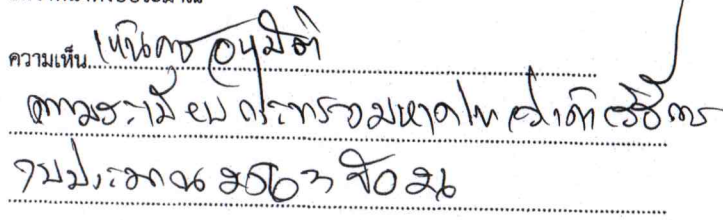 ความเห็น เห็นควรอนุมัติ
ตามระเบียบกระทรวงมหาดไทยว่าด้วยวิธีการ
งบประมาณ 2563 ข้อ 26